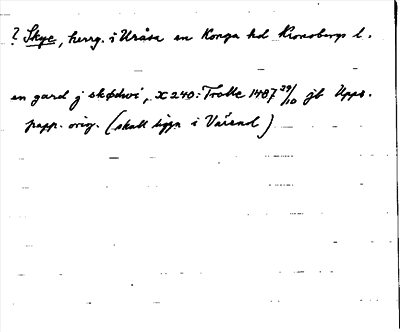 ? Skye, herrg. i Uråsa sn Konga hd Kronobergs l.
en gard j skødwi, X 240: Trolle 1487 29/10 jb Upps.
papp. orig. (skall ligga i Värend)